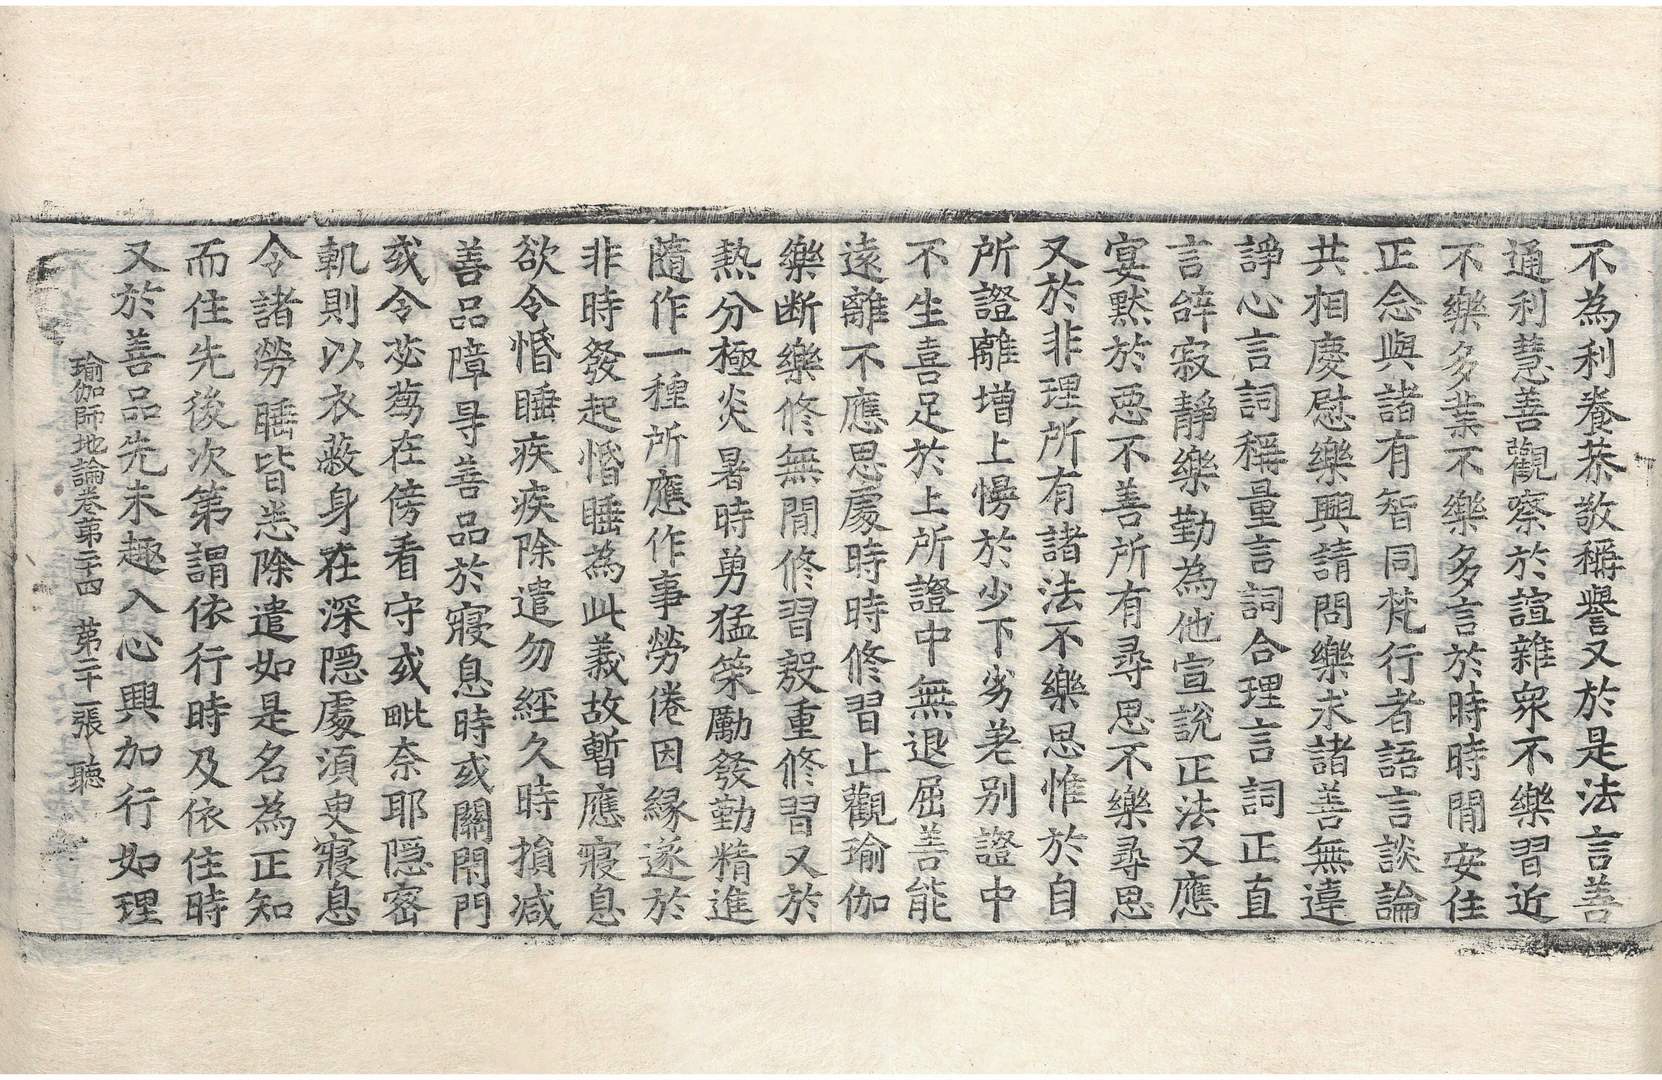 不為利養恭敬稱譽又於是法言善
通利慧善觀察於諠雜衆不樂習近
不樂多業不樂多言於時時閒安住
正念與諸有智同梵行者語言談論
共相慶慰樂興請問樂求諸善無違
諍心言詞稱量言詞合理言詞正直
言辝寂靜樂勤為他宣說正法又應
宴黙於惡不善所有尋思不樂尋思
又於非理所有諸法不樂思惟於自
所證離增上慢於少下劣差別證中
不生喜足於上所證中無退屈善能
遠離不應思處時時修習止觀瑜伽
樂断樂修無閒修習殷重修習又於
熱分極炎暑時勇猛策勵發勤精進
隨作一種所應作事勞倦因緣遂於
非時發起惛睡為此義故暫應寢息
欲令惛睡疾疾除遣勿經久時損减
善品障㝵善品於寢息時或關閇門
或令苾蒭在傍看守或毗奈耶隱密
軌則以衣蔽身在深隱處湏臾寢息
令諸勞睡皆悉除遣如是名為正知
而住先後次第謂依行時及依住時
又於善品先未趣入心興加行如理
瑜伽師地論卷第二十四 第二十一張 聽